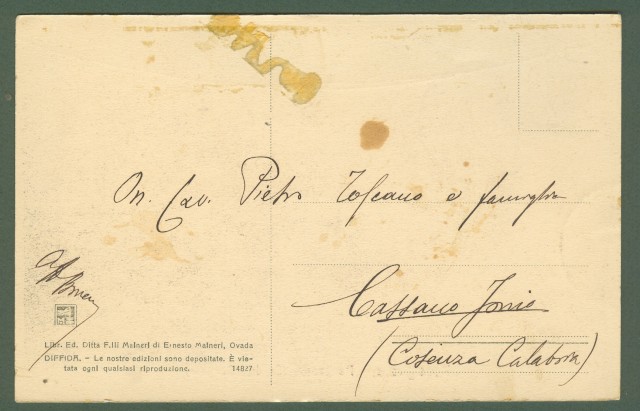 On. Cav. Pietro Toscano e famiglia
Cassano Jonio
(Cosenza Calabria)
Libr. Ed. Ditta F.lli Maineri di Ernesto Maineri, Ovada
DIFFIDA. - Le nostre edizioni sono depositate. È vie-
tata ogni qualsiasi riproduzione. 14827